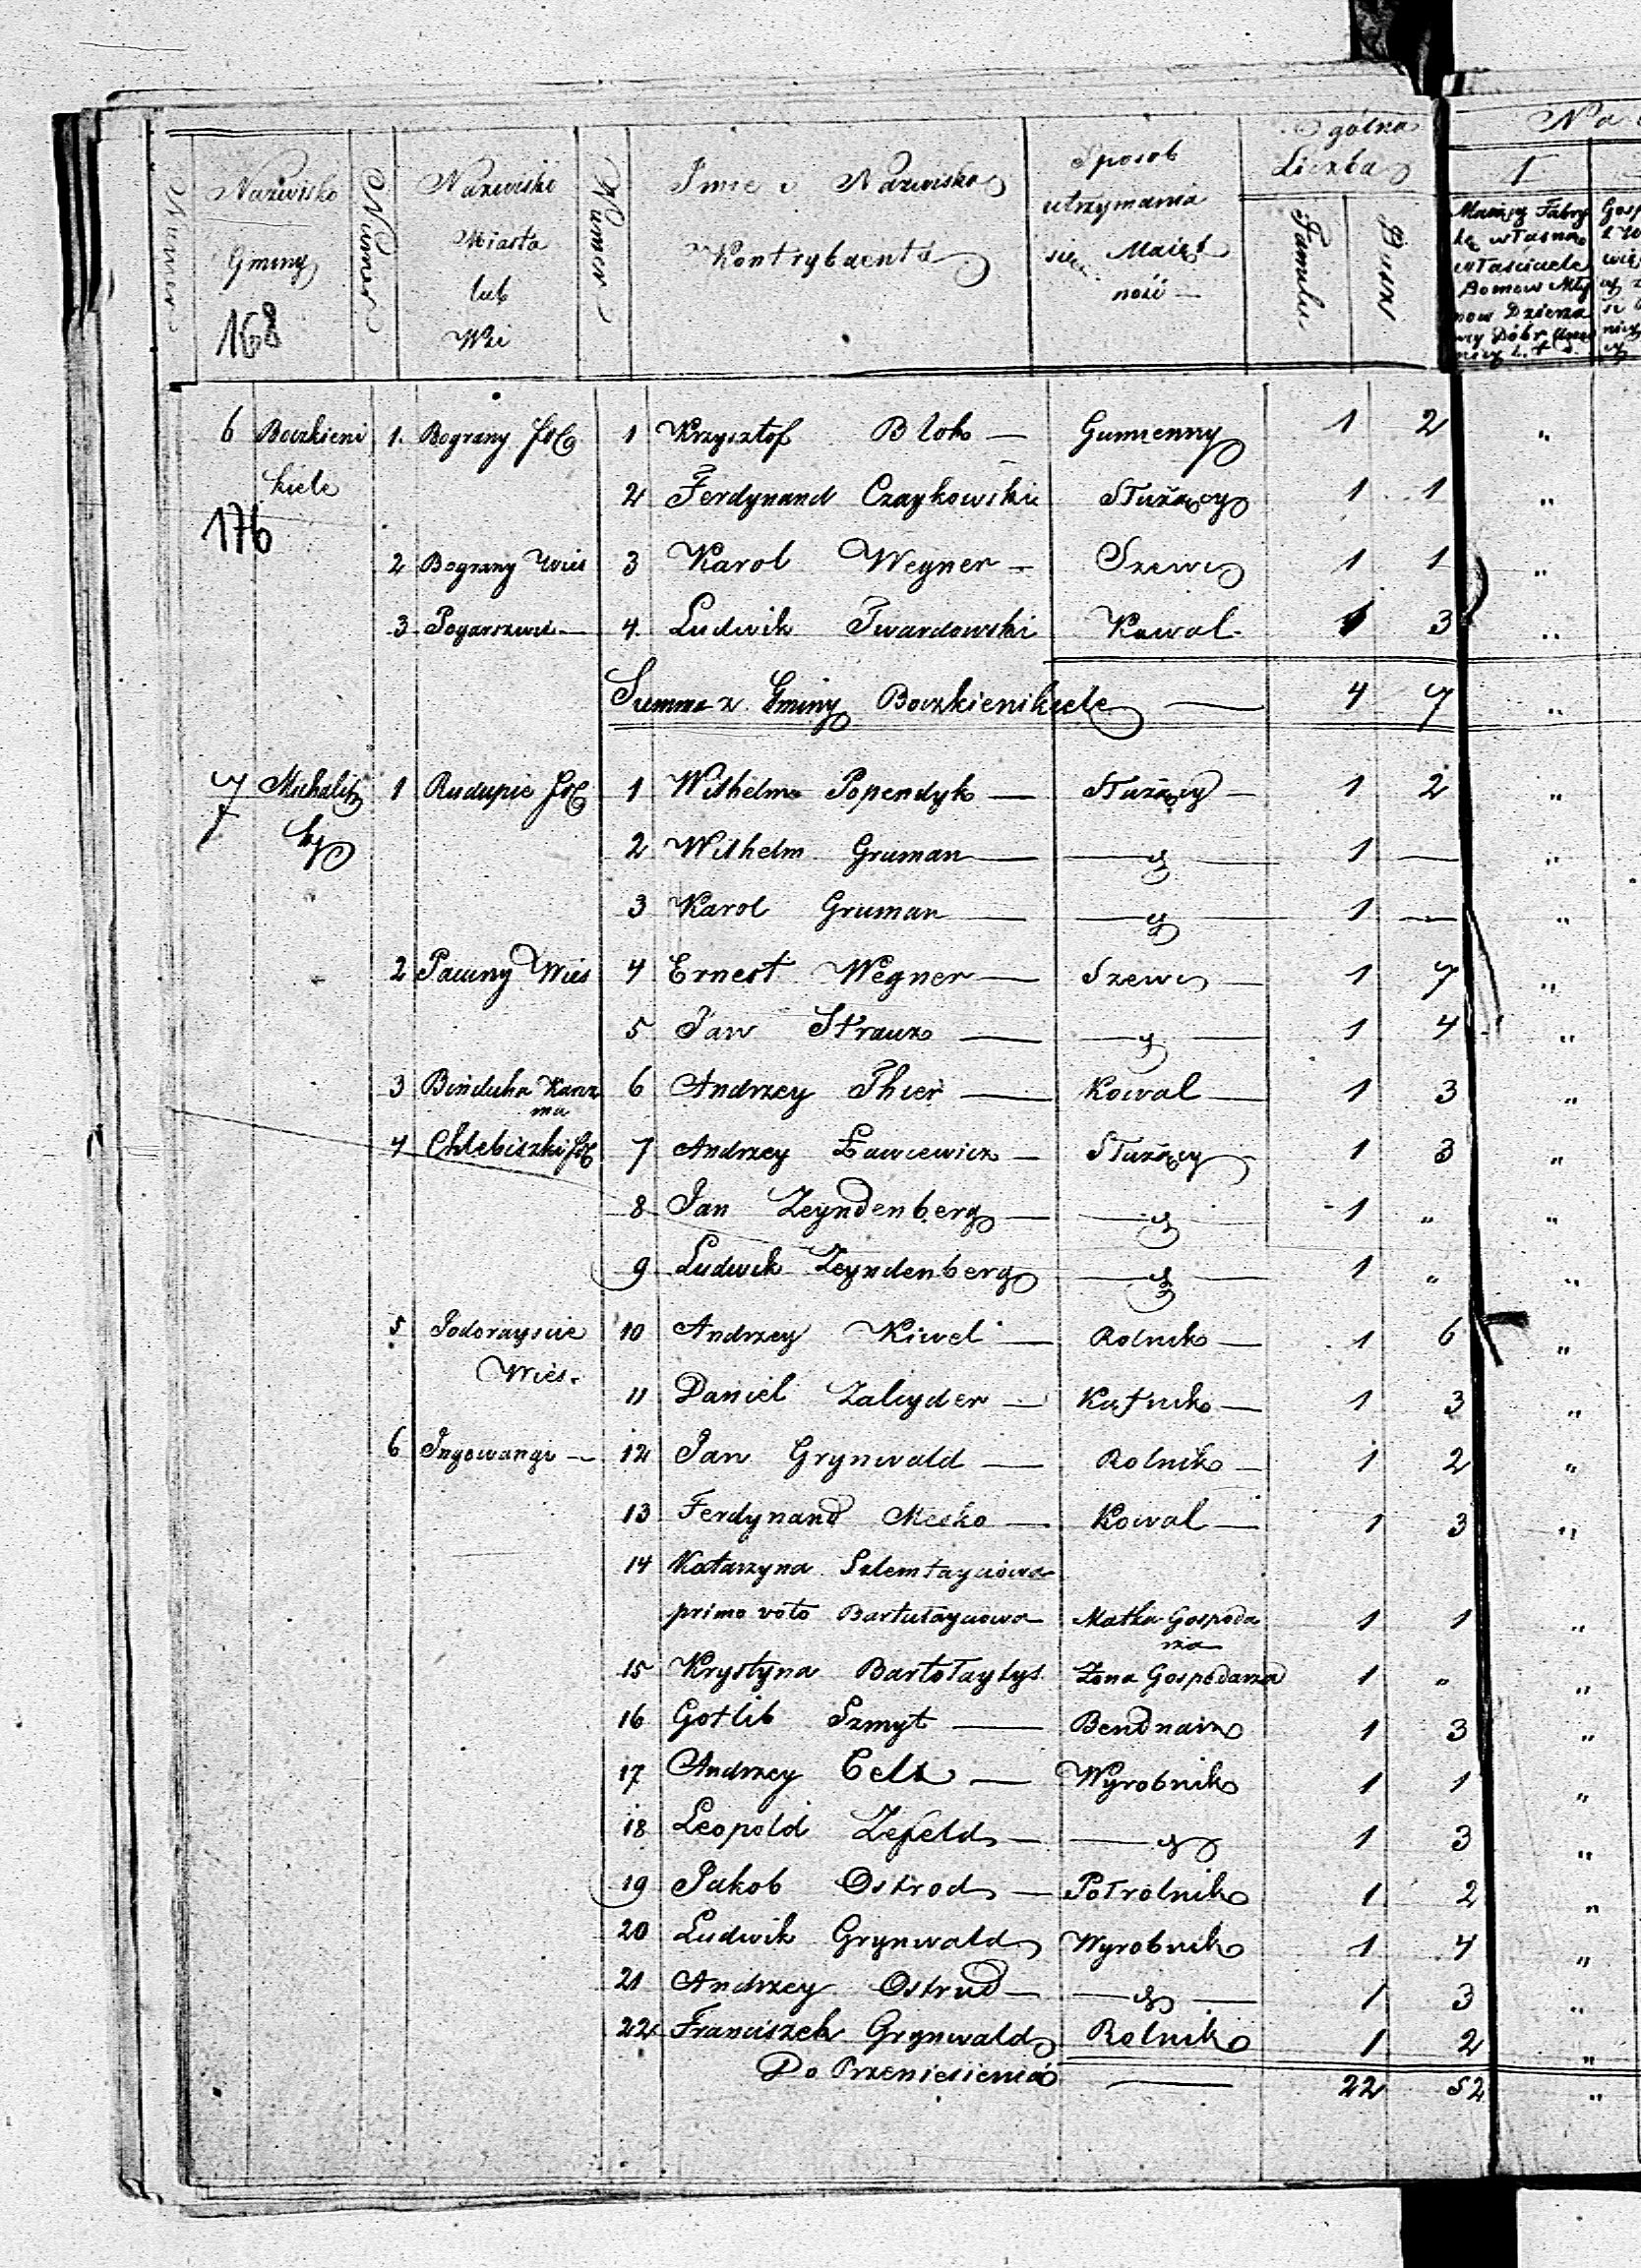 Numer Nazwisko Gminy Numer Nazwisko Miasta lub Wsi Numer Imie i Nazwisko Kontrybuenta Sposob utrzymania się Maięt ność — Ogólna Liczba Familii Dusz
168
Na
1
Maiący Fabry
kę własną
właściciele
Domow Mły
now Dzierża
wcy Dóbr
6 Boczkieni 1. Bograny 1 Krzysztof Blok — Gumienny 1 2 "
kiele 2 Ferdynand Czaykowski Służący 1 1 "
176
2 Bograny Wieś 3 Karol Wegner — Szewc 1 1 "
3 Pogarszwie — 4. Ludwik Twardowski Kowal 1 3 "
Summa z Gminy Boczkienikiele — 4 7 "
7 Michalisz 1 Rudupie 1 Wilhelm Popendyk — Służący — 1 2 "
7 ky 2 Wilhelm Gruman — — 1 — "
3 Karol Gruman — — 1 — "
2 Pauny Wieś 4 Ernest Wegner — Szewc — 1 7 "
5 Jan Strauz — — 1 4 "
3 Binduha Karcz 6 Andrzey Thier — Kowal — 1 3 "
ma
4 Chlebiszki 7 Andrzey Ławcewicz — Służący — 1 3 "
8 Jan Zeyndenberg — — 1 " "
9 Ludwik Zeyndenberg — 1 " "
5 Podorayscie 10 Andrzey Kiwel — Rolnik — 1 6 "
Wieś. 11 Daniel Zalcyder — Kątnik — 1 3 "
6 Ingowangi — 12 Jan Grynwald — Rolnik — 1 2 "
13 Ferdynand Mecko — Kowal — 1 3 "
14 Katarzyna Szlemtayciowa
primo voto Bartułayciowa Matka Gospoda 1 1 "
rza
15 Krystyna Bartołaytys Żona Gospodarza 1 " "
16 Gotlib Szmyt — Bendnarz 1 3 "
17 Andrzey Celz — Wyrobnik 1 1 "
18 Leopold Zefeld — — 1 3 "
19 Jakob Ostrod — Połrolnik 1 2 "
20 Ludwik Grynwald Wyrobnik 1 4 "
21 Andrzey Ostrud — — 1 3 "
22 Franciszek Grynwald Rolnik 1 2 "
Do Przeniesienia — 22 52 "